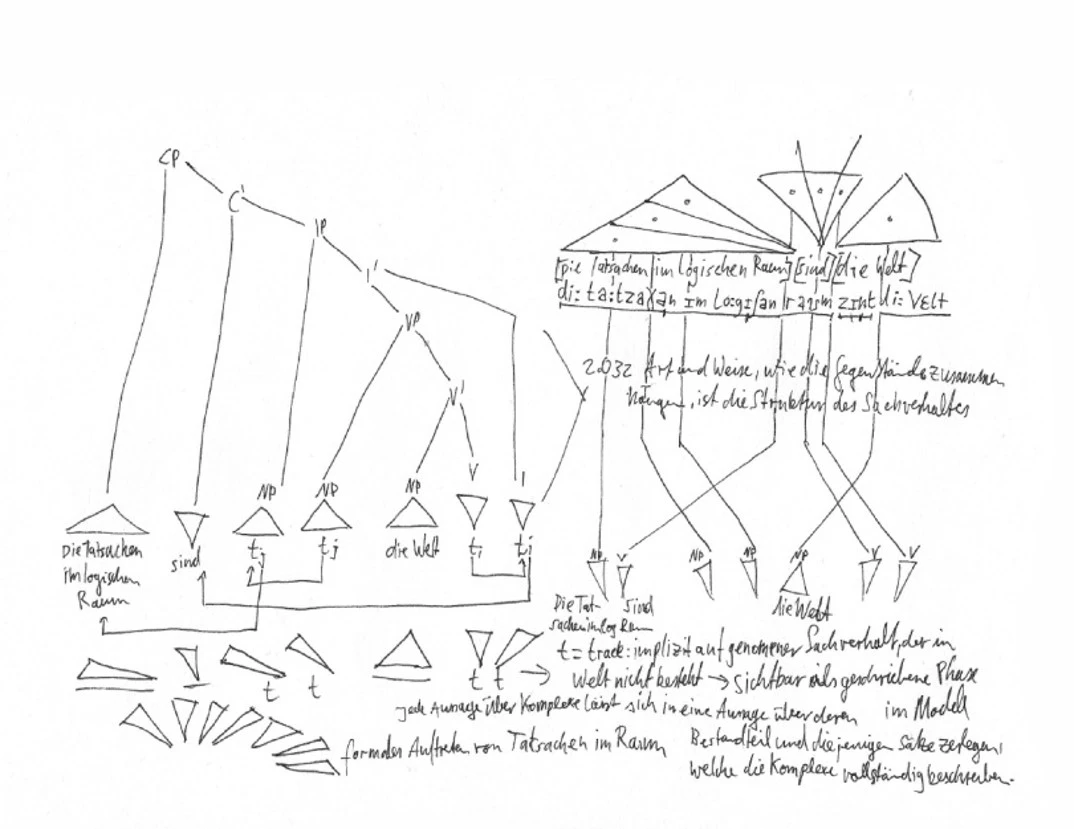 CP
C'
IP
I'
VP
V'
V
I
NP
NP
NP
Die Tatsachen
im logischen
Raum
sind
tj
tj
die Welt
ti
ti
t
t
t t
[Die Tatsachen im logischen Raum] [sind] [die Welt]
2.032 Art und Weise, wie die Gegenstände zusammen
hängen, ist die Struktur des Sachverhaltes
NP
V
NP
NP
NP
V
V
Die Tat-
sachen im log Raum
sind
die Welt
t = track: implizit aufgenomener Sachverhalt, der in
Welt nicht besteht → sichtbar als geschriebene Phase
im Modell
jede Aussage über Komplexe lässt sich in eine Aussage über deren
Bestandteil und diejenigen Sätze zerlegen,
welche die Komplexe vollständig beschreiben.
formales Auftreten von Tatsachen im Raum